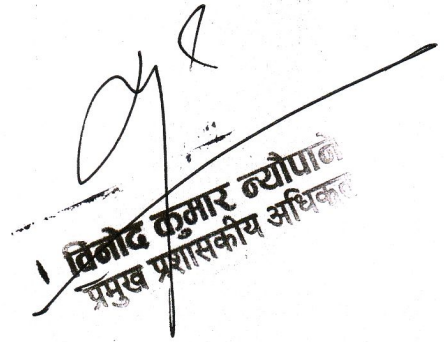 विनोद कुमार न्यौपाने
प्रमुख प्रशासकीय अधिकृत